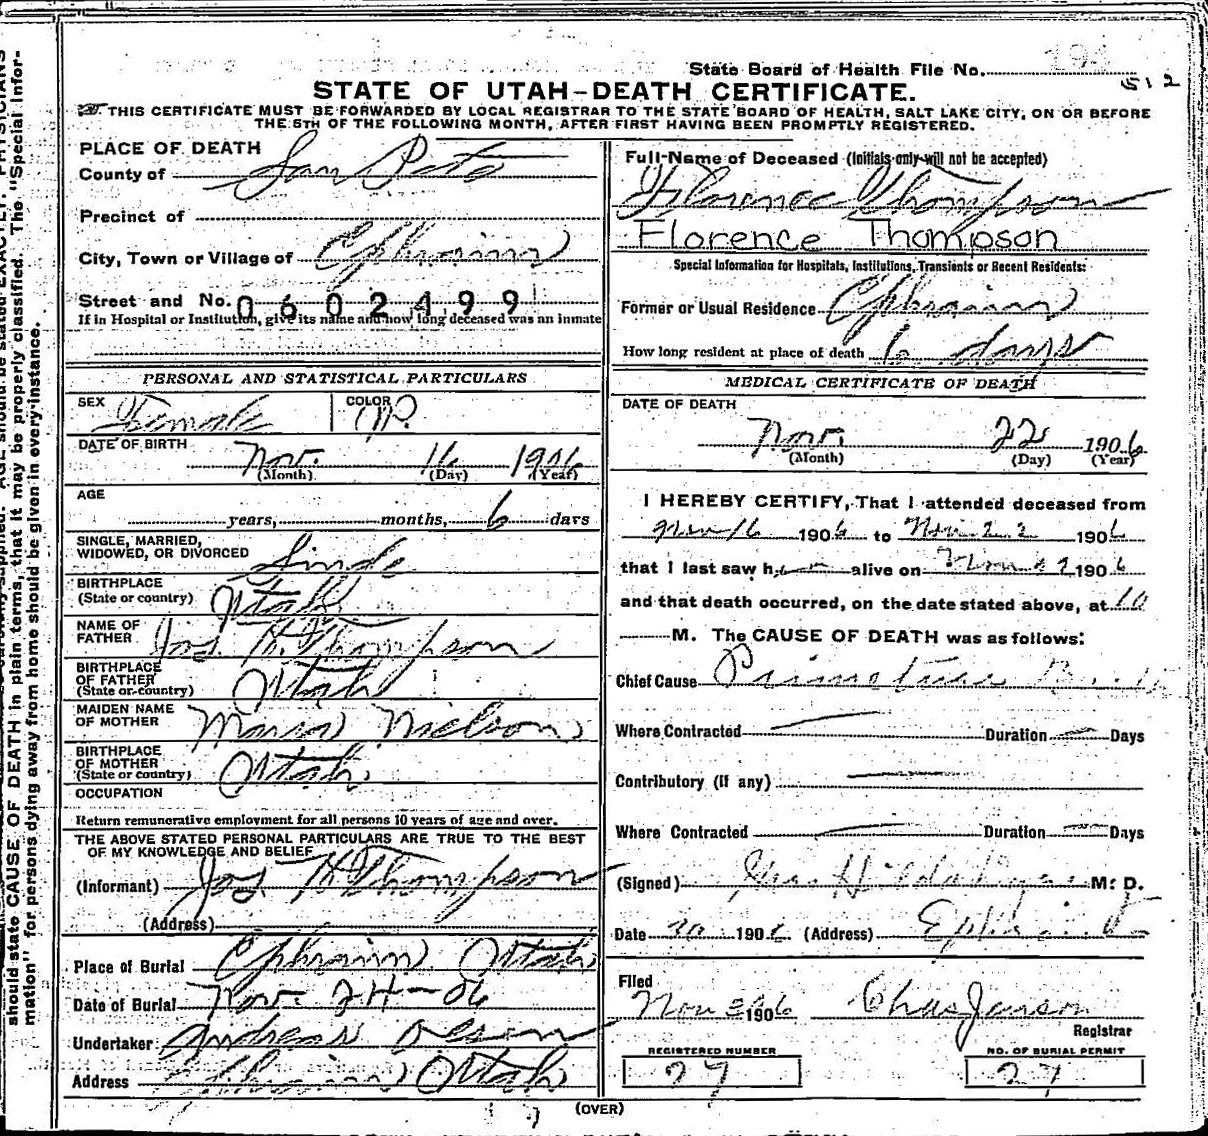 State Board of Health File No.
512
STATE OF UTAH-DEATH CERTIFICATE.
THIS CERTIFICATE MUST BE FORWARDED BY LOCAL REGISTRAR TO THE STATE BOARD OF HEALTH, SALT LAKE CITY, ON OR BEFORE
THE 5TH OF THE FOLLOWING MONTH, AFTER FIRST HAVING BEEN PROMPTLY REGISTERED.
PLACE OF DEATH
County of San Pete
Precinct of
City, Town or Village of Ephraim
Street and No. 0602499
If in Hospital or Institution, give its name and how long deceased was an inmate
PERSONAL AND STATISTICAL PARTICULARS
SEX Female COLOR W.
DATE OF BIRTH Nov. 16 1906
(Month) (Day) (Year)
AGE
years, months, 6 days
SINGLE, MARRIED,
WIDOWED, OR DIVORCED Single
BIRTHPLACE
(State or country) Utah
NAME OF
FATHER Jos H. Thompson
BIRTHPLACE
OF FATHER
(State or country) Utah
MAIDEN NAME
OF MOTHER Nielson
BIRTHPLACE
OF MOTHER
(State or country) Utah
OCCUPATION
Return remunerative employment for all persons 10 years of age and over.
THE ABOVE STATED PERSONAL PARTICULARS ARE TRUE TO THE BEST
OF MY KNOWLEDGE AND BELIEF
(Informant) Jos H Thompson
(Address)
Place of Burial Ephraim Utah
Date of Burial Nov. 24-06
Undertaker Andreas Olsen
Address Ephraim Utah
Full Name of Deceased (Initials only will not be accepted)
Florence Thompson
Florence Thompson
Special Information for Hospitals, Institutions, Transients or Recent Residents:
Former or Usual Residence Ephraim
How long resident at place of death 6 days
MEDICAL CERTIFICATE OF DEATH
DATE OF DEATH
Nov. 22 1906
(Month) (Day) (Year)
I HEREBY CERTIFY, That I attended deceased from
Nov 16 1906 to Nov 22 1906
that I last saw her alive on Nov 1906
and that death occurred, on the date stated above, at 10
M. The CAUSE OF DEATH was as follows:
Chief Cause Primature Birth
Where Contracted Duration Days
Contributory (if any)
Where Contracted Duration Days
(Signed) M. D.
Date 1906 (Address) Ephraim
Filed
Nov 1906 Chas Jenson
Registrar
REGISTERED NUMBER NO. OF BURIAL PERMIT
27 27
(OVER)
should state CAUSE OF DEATH in plain terms, that it may be properly classified. The "Special Infor-
mation" for persons dying away from home should be given in every instance.